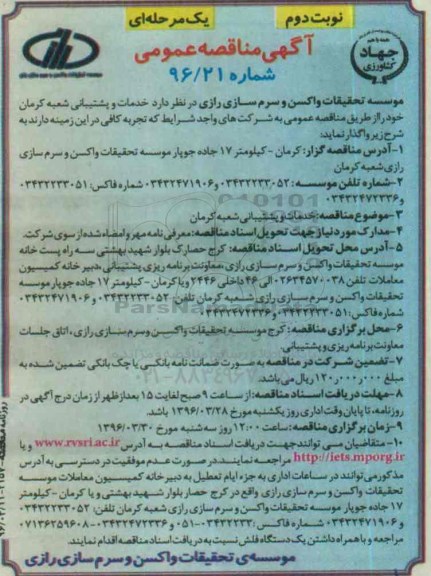 نوبت دوم
یک مرحله‌ای
آگهی مناقصه عمومی
شماره ۹۶/۲۱
جهاد
کشاورزی
موسسه تحقیقات واکسن و سرم سازی رازی در نظر دارد خدمات و پشتیبانی شعبه کرمان
خود را از طریق مناقصه عمومی به شرکت های واجد شرایط که تجربه کافی در این زمینه دارند به
شرح زیر واگذار نماید:
۱-آدرس مناقصه گزار: کرمان - کیلومتر ۱۷ جاده جوپار موسسه تحقیقات واکسن و سرم سازی
رازی شعبه کرمان
۲-شماره تلفن موسسه: ۰۳۴۳۲۲۳۳۰۵۲ و ۰۳۴۳۲۴۷۱۹۰۶ شماره فاکس: ۰۳۴۳۲۲۳۳۰۵۱
و ۰۳۴۳۲۴۷۲۳۳۶
۳-موضوع مناقصه: خدمات و پشتیبانی شعبه کرمان
۴-مدارک مورد نیاز جهت تحویل اسناد مناقصه: معرفی نامه مهر و امضاء شده از سوی شرکت.
۵-آدرس محل تحویل اسناد مناقصه: کرج حصارک بلوار شهید بهشتی سه راه پست خانه
موسسه تحقیقات واکسن و سرم سازی رازی، معاونت برنامه ریزی پشتیبانی، دبیر خانه کمیسیون
معاملات تلفن ۰۲۶۳۴۵۷۰۰۳۸ الی ۴۶ داخلی ۲۴۴۶ و یا کرمان - کیلومتر ۱۷ جاده جوپار موسسه
تحقیقات واکسن و سرم سازی رازی شعبه کرمان تلفن: ۰۳۴۳۲۲۳۳۰۵۲ و ۰۳۴۳۲۴۷۱۹۰۶
شماره فاکس: ۰۳۴۳۲۲۳۳۰۵۱ و
۶-محل برگزاری مناقصه: کرج موسسه تحقیقات واکسن و سرم سازی رازی، اتاق جلسات
معاونت برنامه ریزی و پشتیبانی.
۷-تضمین شرکت در مناقصه به صورت ضمانت نامه بانکی یا چک بانکی تضمین شده به
مبلغ ۱۲۰,۰۰۰,۰۰۰ ریال می باشد.
۸-مهلت دریافت اسناد مناقصه: از ساعت ۹ صبح لغایت ۱۵ بعداز ظهر از زمان درج آگهی در
روزنامه، تا پایان وقت اداری روز یکشنبه مورخ ۱۳۹۶/۰۳/۲۸ باشد.
۹-زمان برگزاری مناقصه: ساعت ۱۲:۰۰ روز سه شنبه مورخ ۱۳۹۶/۰۳/۳۰
۱۰-متقاضیان می توانند جهت دریافت اسناد مناقصه به آدرس www.rvsri.ac.ir و یا
http://iets.mporg.ir مراجعه نمایند. در صورت عدم موفقیت در دسترسی به آدرس
مذکور می توانند در ساعات اداری به جزء ایام تعطیل به دبیر خانه کمیسیون معاملات موسسه
تحقیقات واکسن و سرم سازی رازی واقع در کرج حصار بلوار شهید بهشتی و یا کرمان - کیلومتر
۱۷ جاده جوپار موسسه تحقیقات واکسن و سرم سازی رازی شعبه کرمان تلفن: ۰۳۴۳۲۲۳۳۰۵۲
و ۰۳۴۳۲۴۷۱۹۰۶ شماره فاکس: ۰۳۴۳۲۲۳۳۰۵۱ و ۰۳۴۳۲۴۷۲۳۳۶ - ۰۷۱۳۶۲۵۹۶۰۸
مراجعه و با همراه داشتن یک دستگاه فلش نسبت به دریافت اسناد مناقصه اقدام نمایند.
موسسه‌ی تحقیقات واکسن و سرم سازی رازی